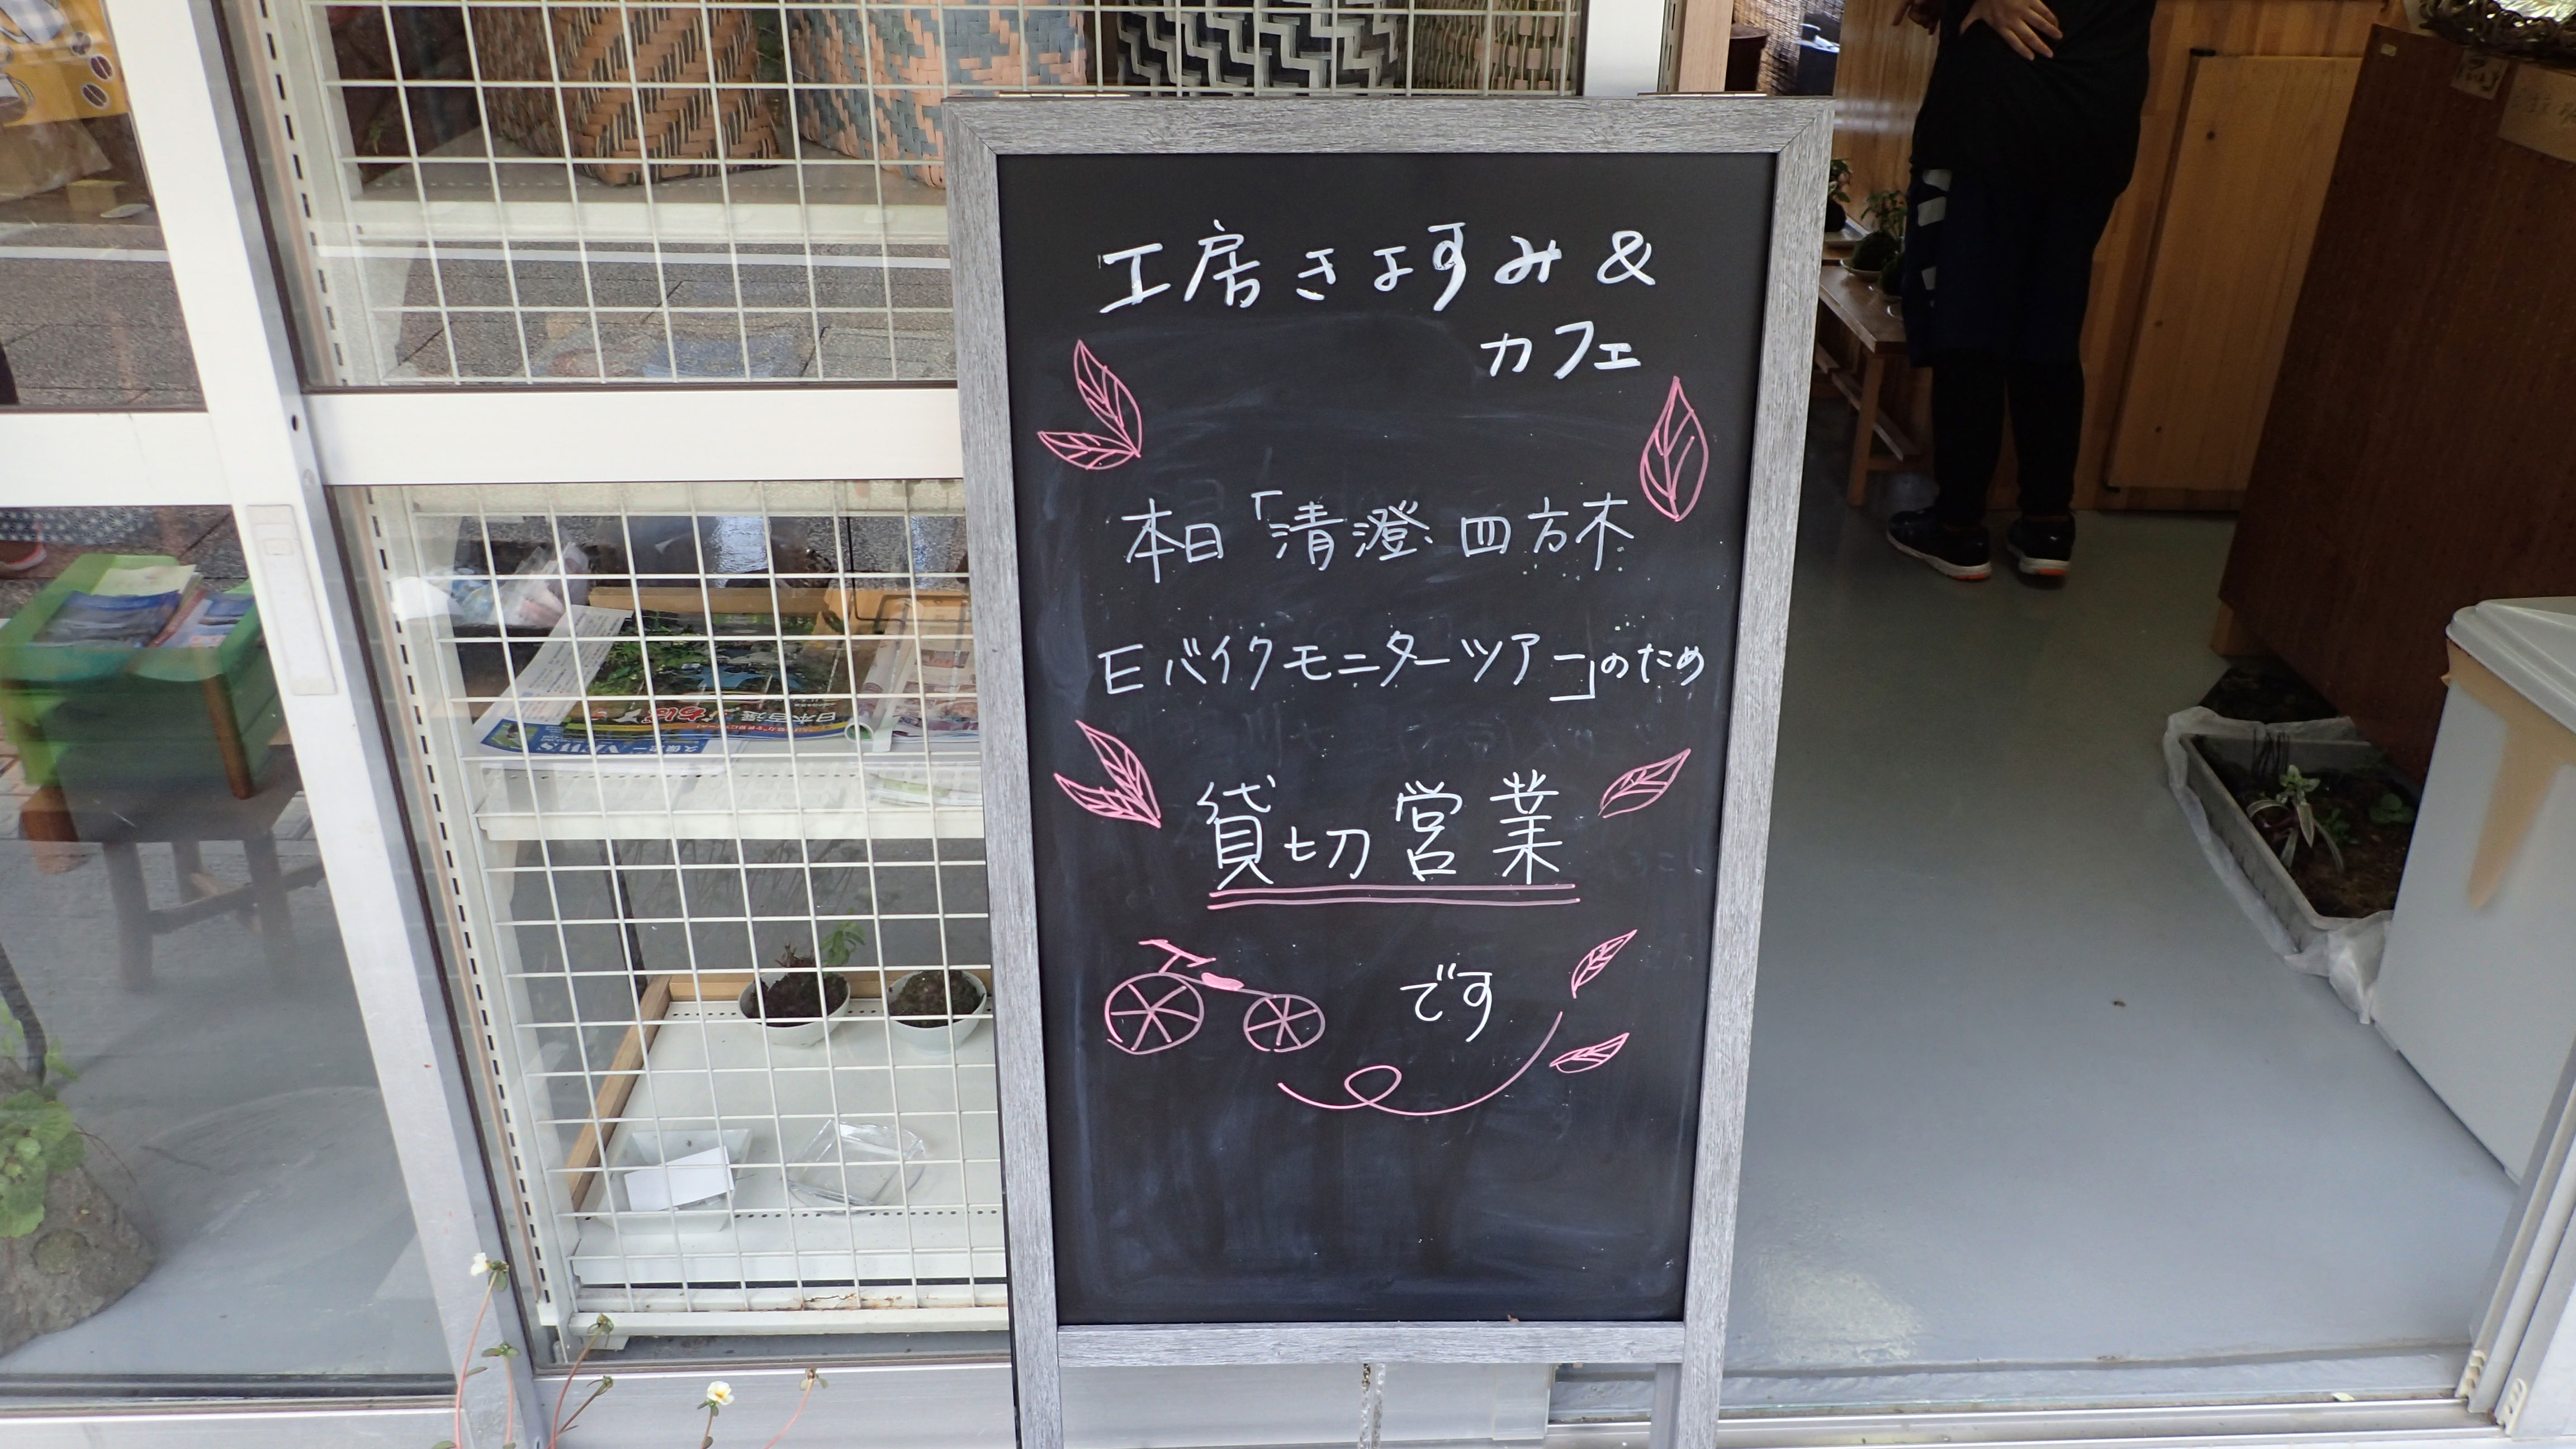 工房きよすみ&
カフェ
本日「清澄 四方木
Eバイクモニターツアー」のため
貸切営業
です